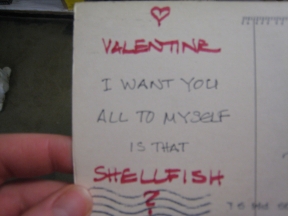 VALENTINE
I WANT YOU
ALL TO MYSELF
IS THAT
SHELLFISH
?